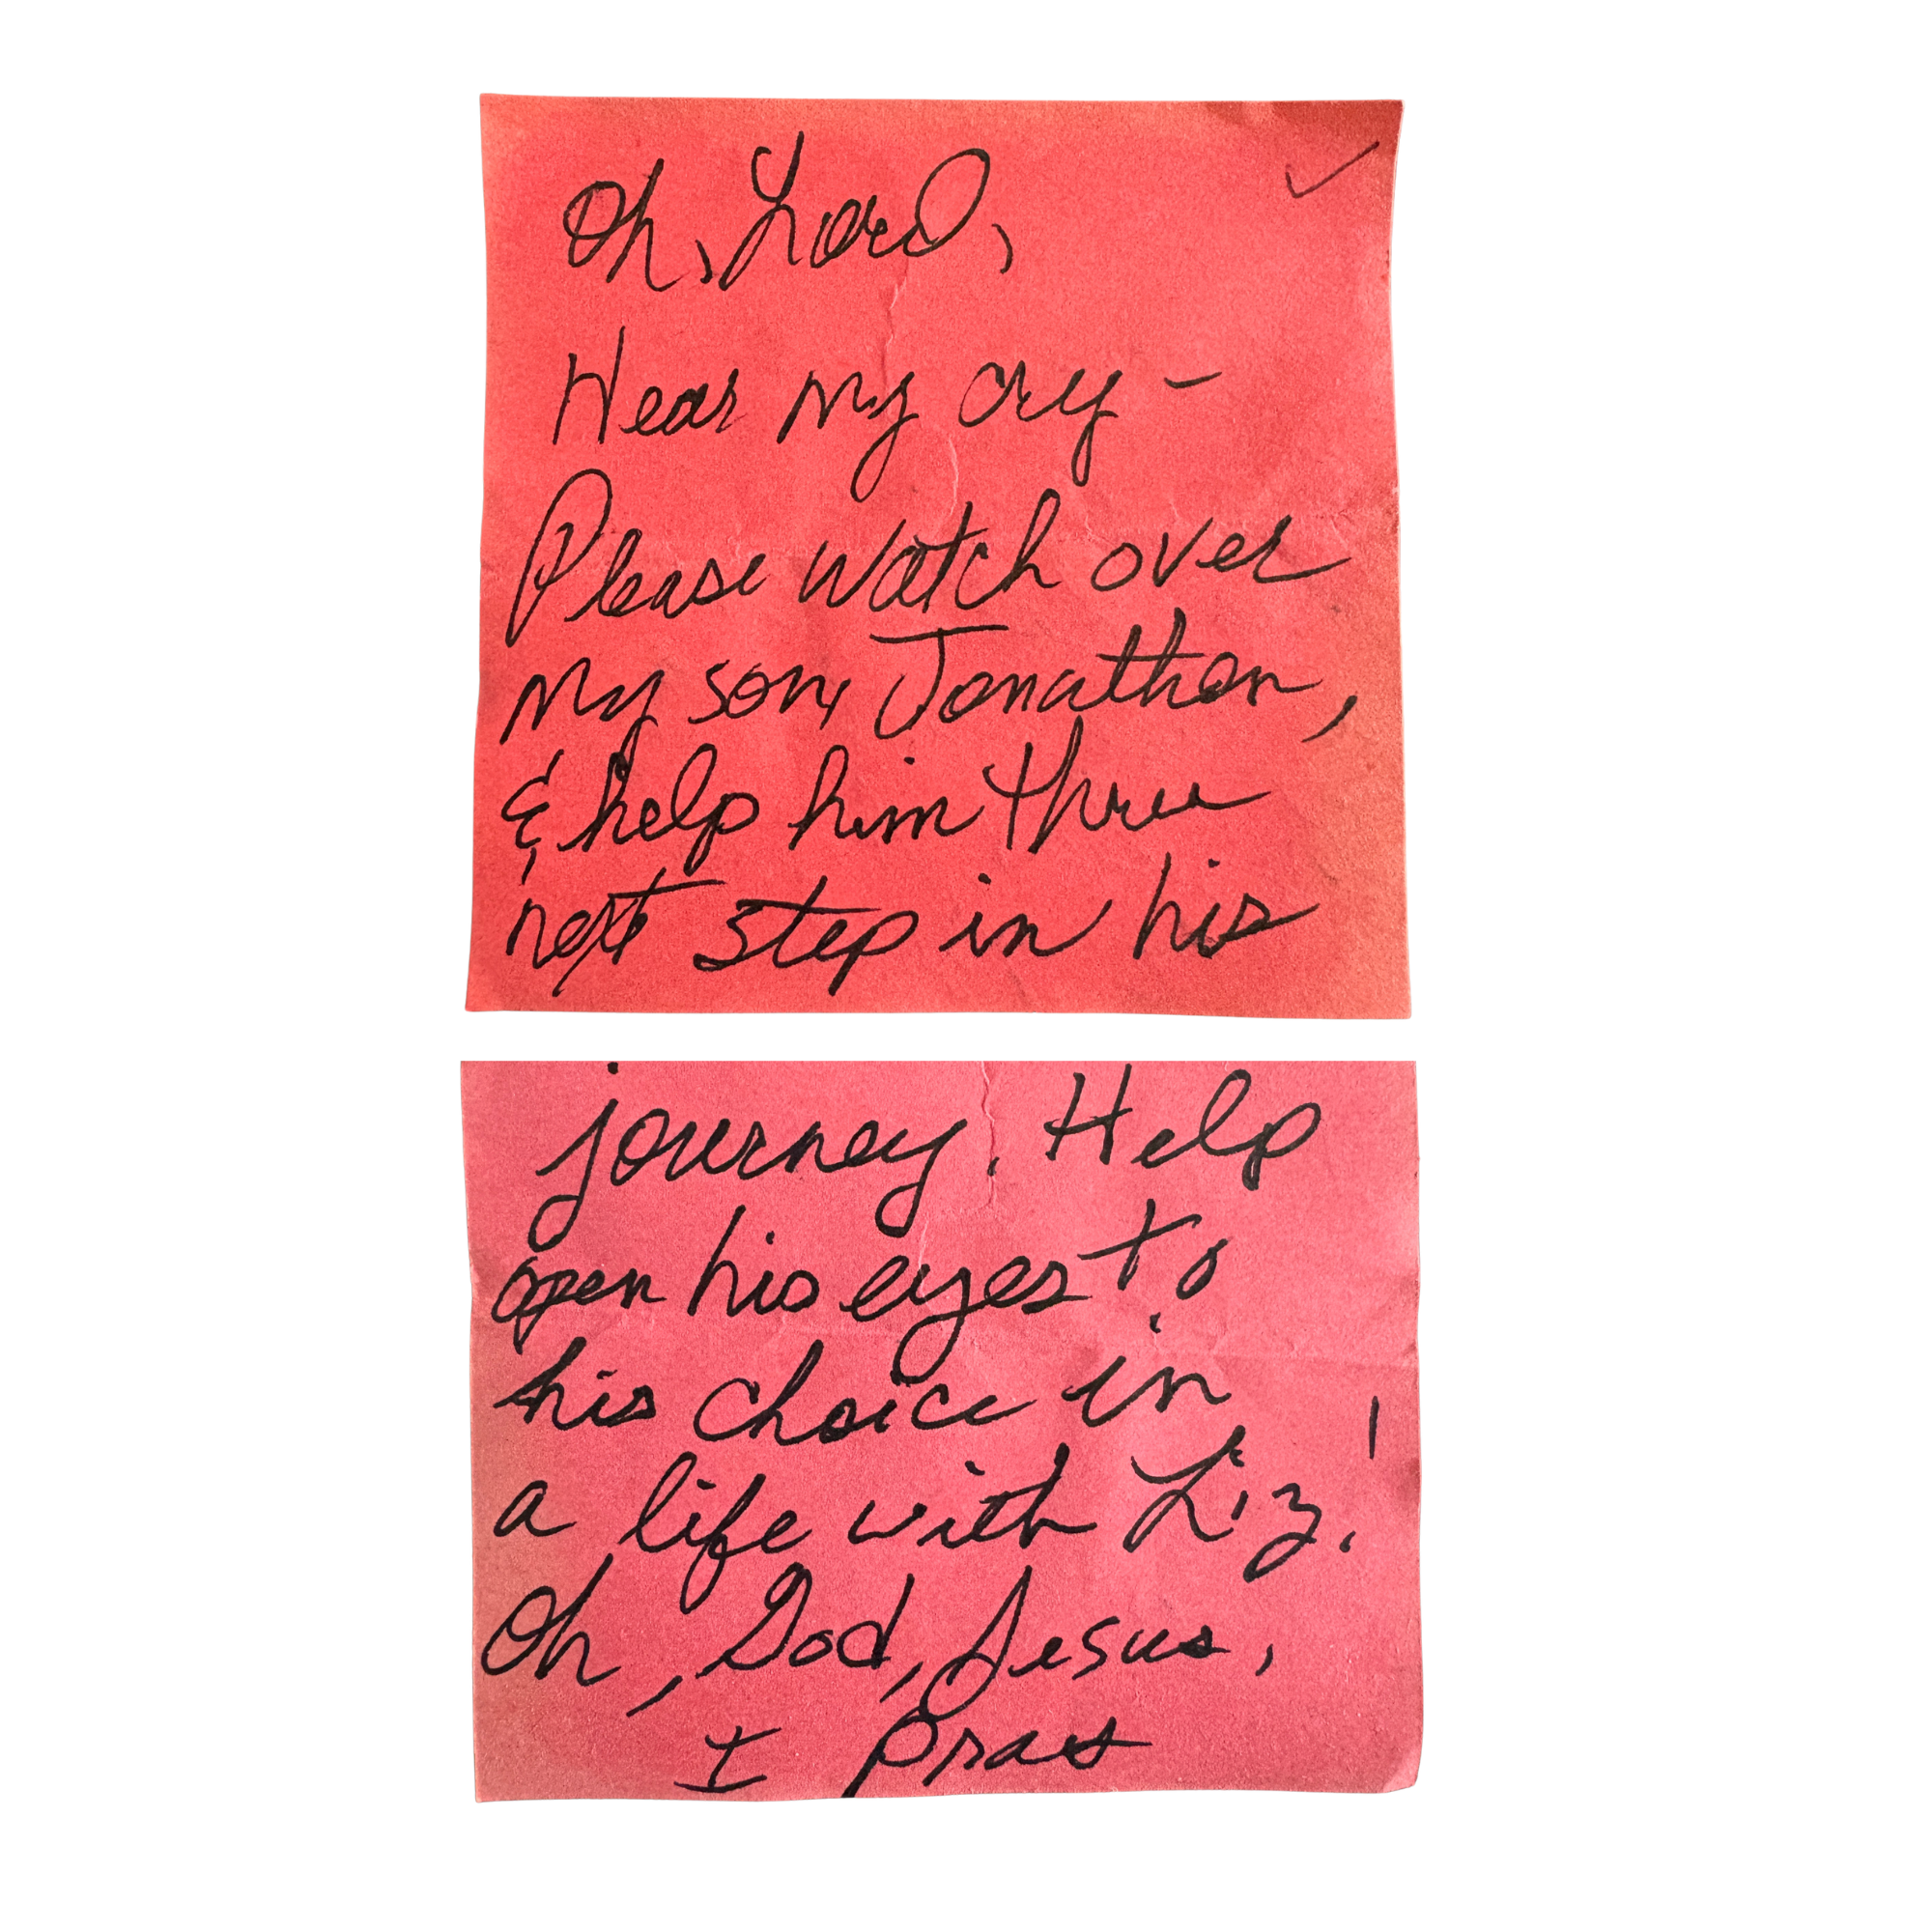 Oh, Lord,
Hear my cry -
Please watch over
my son, Jonathon,
& help him thru
next step in his
journey. Help
open his eyes to
his choice in
a life with Liz!
Oh, God, Jesus,
I pray